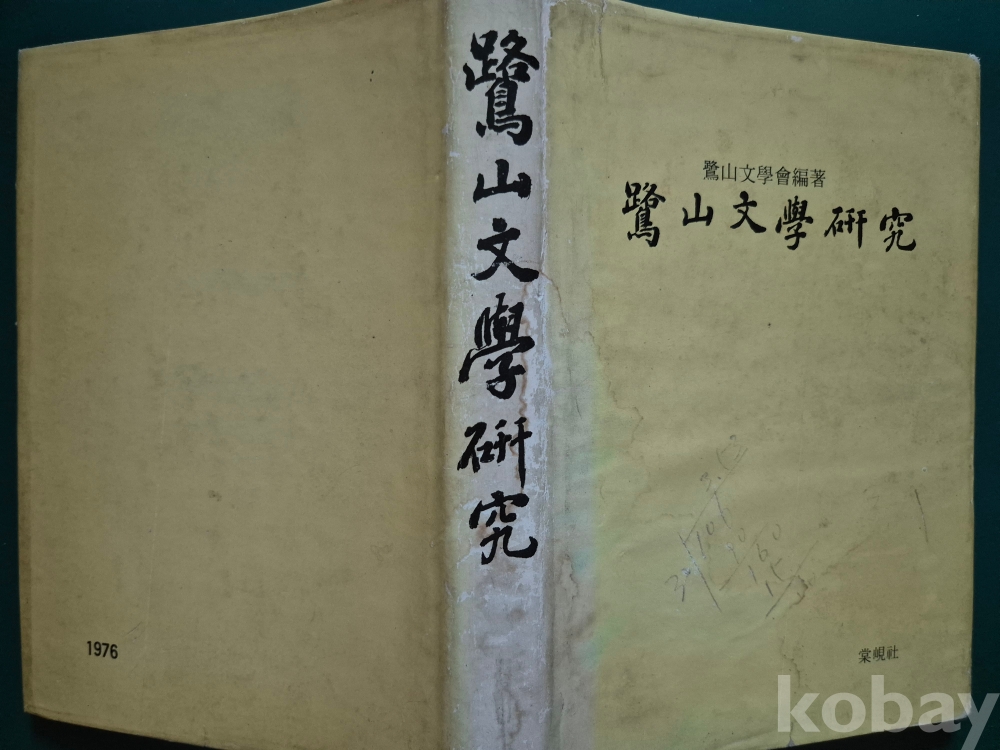 鷺山文學硏究
鷺山文學會編著
鷺山文學硏究
1976
棠峴社
kobay